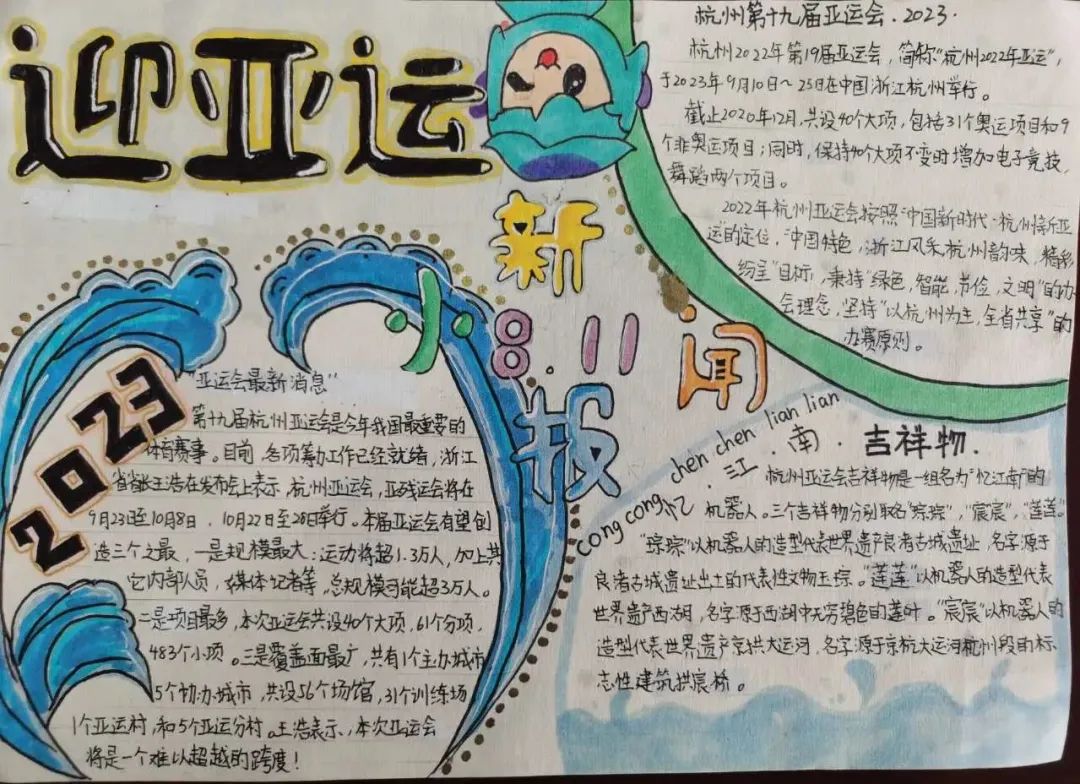 迎亚运
杭州第十九届亚运会.2023.
杭州2022年第19届亚运会,简称"杭州2022年亚运",
于2023年9月10日~25日在中国浙江杭州举行。
截止2020年12月,共设40个大项,包括31个奥运项目和9
个非奥运项目;同时,保持40个大项不变时增加电子竞技,
舞蹈两个项目。
2022年杭州亚运会按照"中国新时代·杭州新亚
运"的定位,"中国特色,浙江风采,杭州韵味,精彩
纷呈"目标,秉持"绿色,智能,节俭,文明"的办
会理念,坚持"以杭州为主,全省共享"的
办赛原则。
新
小8.11闻
报
2023
"亚运会最新消息"
第十九届杭州亚运会是今年我国最重要的
体育赛事。目前,各项筹办工作已经就绪,浙江
省省长王浩在发布会上表示,杭州亚运会,亚残运会将在
9月23日至10月8日,10月22日至28日举行。本届亚运会有望创
造三个之最,一是规模最大:运动将超1.3万人,加上其
它内部人员,媒体记者等,总规模可能超3万人。
二是项目最多,本次亚运会共设40个大项,61个分项,
483个小项。三是覆盖面最广,共有1个主办城市
5个协办城市,共设56个场馆,31个训练场
1个亚运村,和5个亚运分村。王浩表示,本次亚运会
将是一个难以超越的跨度!
cong cong chen chen lian lian
忆.江.南.吉祥物.
杭州亚运会吉祥物是一组名为"忆江南"的
机器人。三个吉祥物分别取名"琮琮","宸宸","莲莲"
"琮琮"以机器人的造型代表世界遗产良渚古城遗址,名字源于
良渚古城遗址出土的代表性文物玉琮。"莲莲"以机器人的造型代表
世界遗产西湖,名字源于西湖中无穷碧色的莲叶。"宸宸"以机器人的
造型代表世界遗产京杭大运河,名字源于京杭大运河杭州段的标
志性建筑拱宸桥。